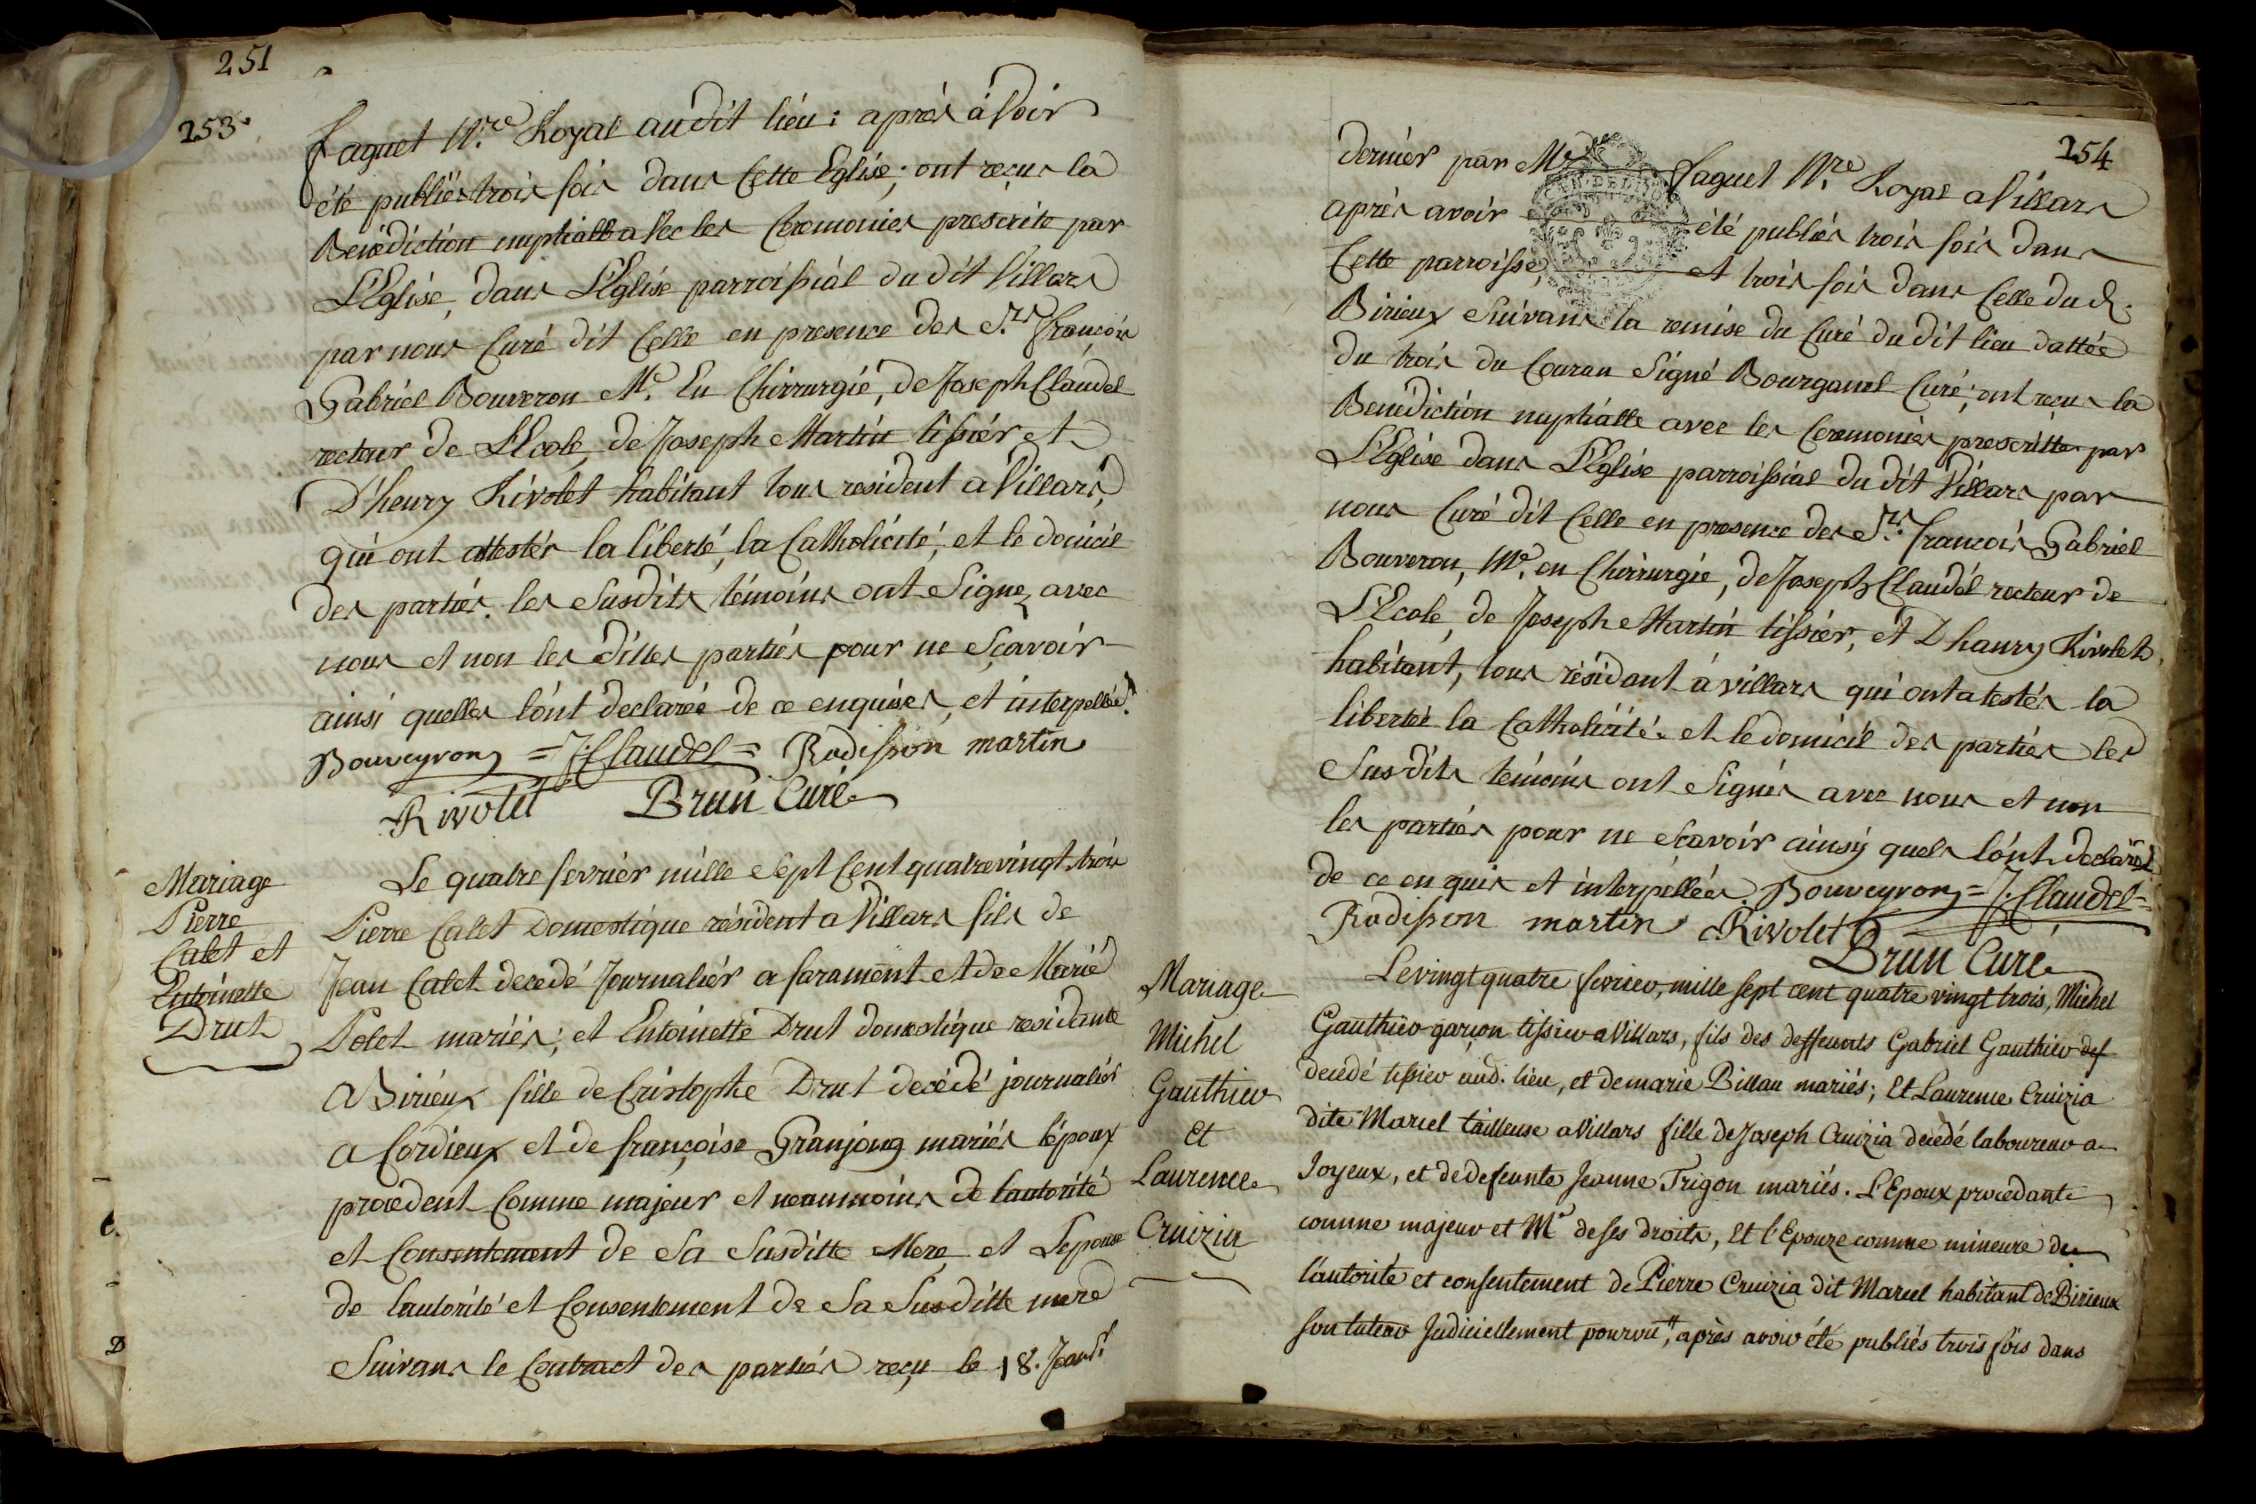 251
253.
faguet N.re Royal audit liéu: aprés àvoir
été publiés trois fois dans Cette Eglise; ont reçus la
Benédiction nuptialle avec les Ceremonies prescrite par
L'Eglise, dans L'Eglise parroissial du dit Villars
par nous Curé dit Celle en presence des S.rs françois
Gabriel Bouveron M.e En Chirrurgie, de Joseph Claudel
recteur de L'Ecole, de Joseph Martin tissiér et
D'henry Rivolet habitant tous resident a Villars,
qui ont attestés la liberté, la Catholicité, et le domicil
des partiés. les Susdits témoins ont Signe, avec
nous et non les dittes partiés pour ne Sçavoir
ainsi quelles l'ónt declarée de ce enquises, et interpellée.
Bouveyron =J:Claudel= Radisson martin
Rivolet Brun Curé
Mariage
Pierre
Calet et
Entoinette
Drut
Le quatre fevriér mille Sept Cent quatrevingt trois
Pierre Calet Domestique résident a Villars fils de
Jean Calet decedé Journaliér a sarament et de Marié
Polet mariés; et Entoinette Drut domestique residante
A Biriéux fille de Cristophe Drut decédé journaliér
a Cordieux et de françoise Granjong mariés l'époux
procedent Comme majeur et neanmoins de lautorité
et Consentement de Sa Susditte Mere, et Lepouse
de lautorité et Consentement de Sa Susditte mere
Suivans le Contract des partiés reçu le 18. Janv.r
254
derniér par M.e faguet N.re Royal a Villars
aprés avoir été publiés trois fois dans
Cette parroisse, et trois fois dans Celle du d.
Birieux Suivans la remise du Curé du dit lieu dattée
du trois du Couran Signé Bourganel Curé; ont reçus la
Benédiction nuptialle avec les Ceremonies prescritte par
L'Eglise dans L'Eglise parroissial du dit Villars par
nous Curé dit Celle en presence des S.rs françois Gabriel
Bouveron, M.e en Chirrurgie, de Joseph Claudél recteur de
L'Ecole, de Joseph Martin tissiér, et D'hanry Rivolet,
habitant, tous résidant á villars qui ont atestés la
libertée la Catholicité. et le domicil des partiés les
Susdits temoins ont Signés avec nous et non
les partiés pour ne Scavoir ainsy quels l'ónt declarée
de ce en quis et interpéllées. Bouveyron =J:Claudel=
Radisson martin Rivolet Brun Curé
Mariage
Michel
Gauthier
et
Laurence
Cruizia
Le vingt quatre fevrier, mille sept cent quatre vingt trois, Michel
Gauthier garçon tissier a Villars, fils des deffunts Gabriel Gauthier def
decédé tissier aud. lieu, et de marie Billau mariés; Et Laurence Cruizia
dite Marcel tailleuse a Villars fille de Joseph Cruizia decédé laboureur a
Joyeux, et de defeunte Jeanne Trigon mariés. L'Epoux procedant
comme majeur et M.e de ses droits, Et l'Epouze comme mineure de
l'autorité et consentement de Pierre Cruizia dit Marcel habitant de Birieux
son tuteur Judiciellement pourvu, après avoir été publiés trois fois dans